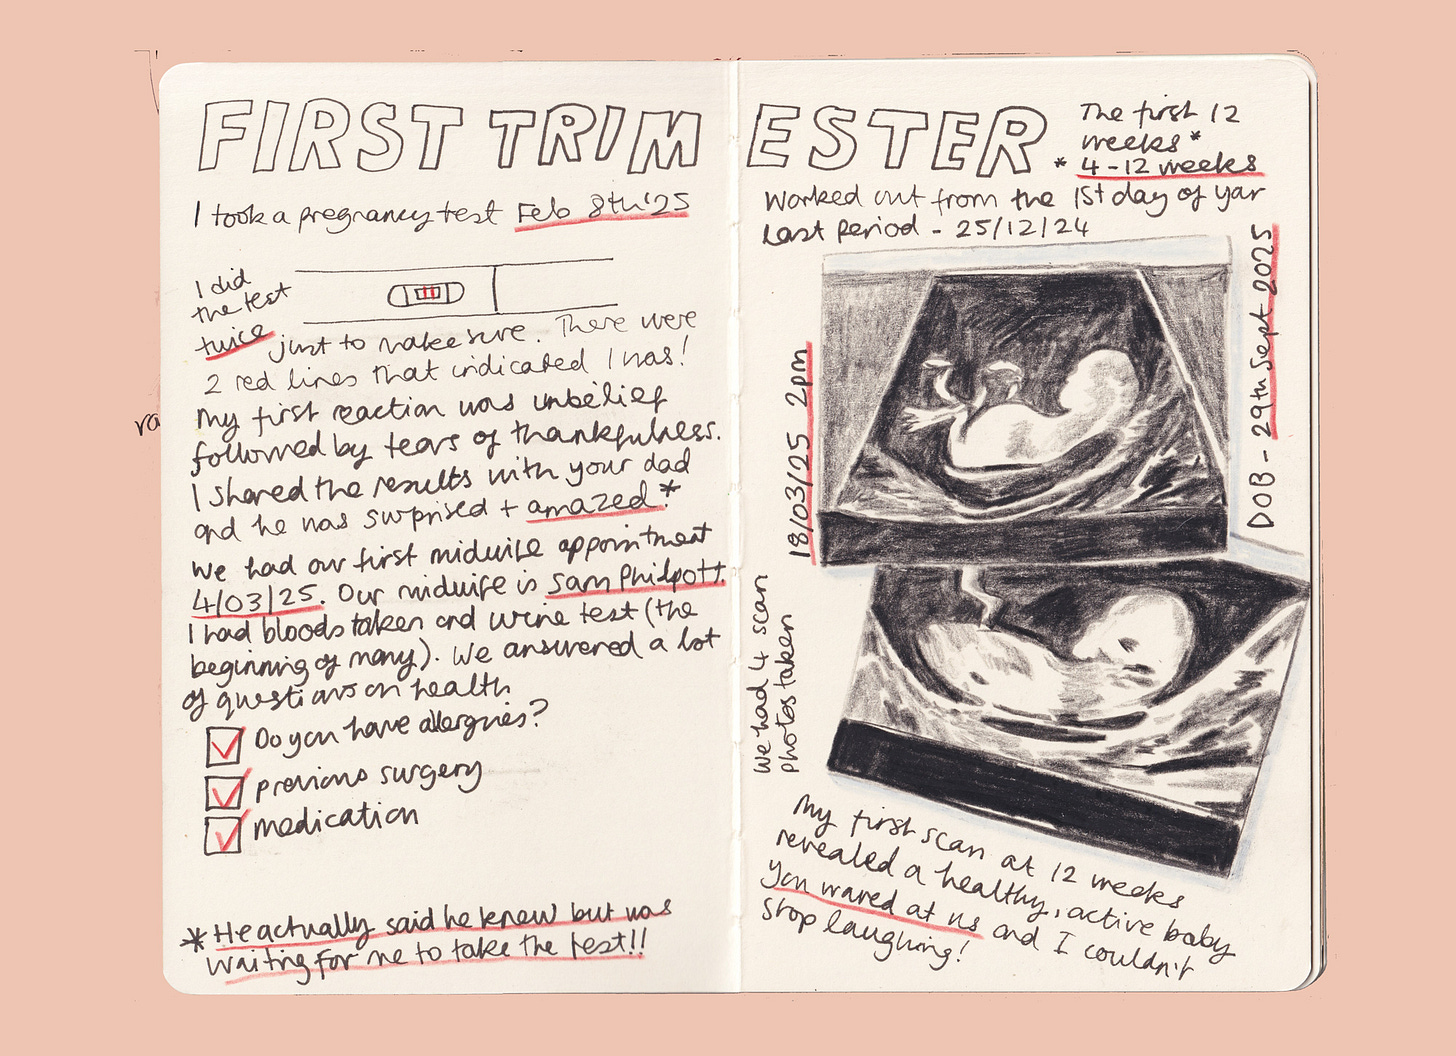 FIRST TRIMESTER
I took a pregnancy test Feb 8th '25
I did
the test
twice just to make sure. There were
2 red lines that indicated I was!
My first reaction was unbelief
followed by tears of thankfulness.
I shared the results with your dad
and he was surprised + amazed*
We had our first midwife appointment
4/03/25. Our midwife is Sam Philpott.
I had bloods taken and urine test (the
beginning of many). We answered a lot
of questions on health
Do you have allergies?
previous surgery
medication
* He actually said he knew but was
waiting for me to take the test!!
The first 12
weeks*
* 4-12 weeks
Worked out from the 1st day of your
Last Period - 25/12/24
18/03/25 2pm
DOB - 29th Sept 2025
We had 4 scan
photos taken
My first scan at 12 weeks
revealed a healthy, active baby
you waved at us and I couldn't
stop laughing!